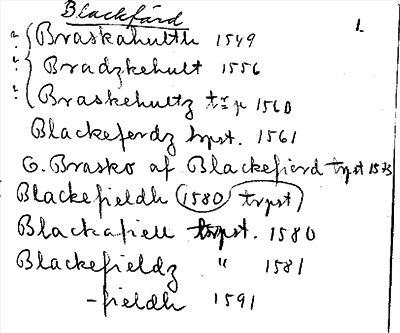 Blackfjärd
1.
? Braskahulth 1549
? Bradzkehult 1556
? Braskehultz 1560
Blackeferdz trpst. 1561
O. Brasko af Blackefierd trpst 1573
Blackefieldh (1580 trpst)
Blackafiell trpst. 1580
Blackefieldz " 1581
-fieldh 1591